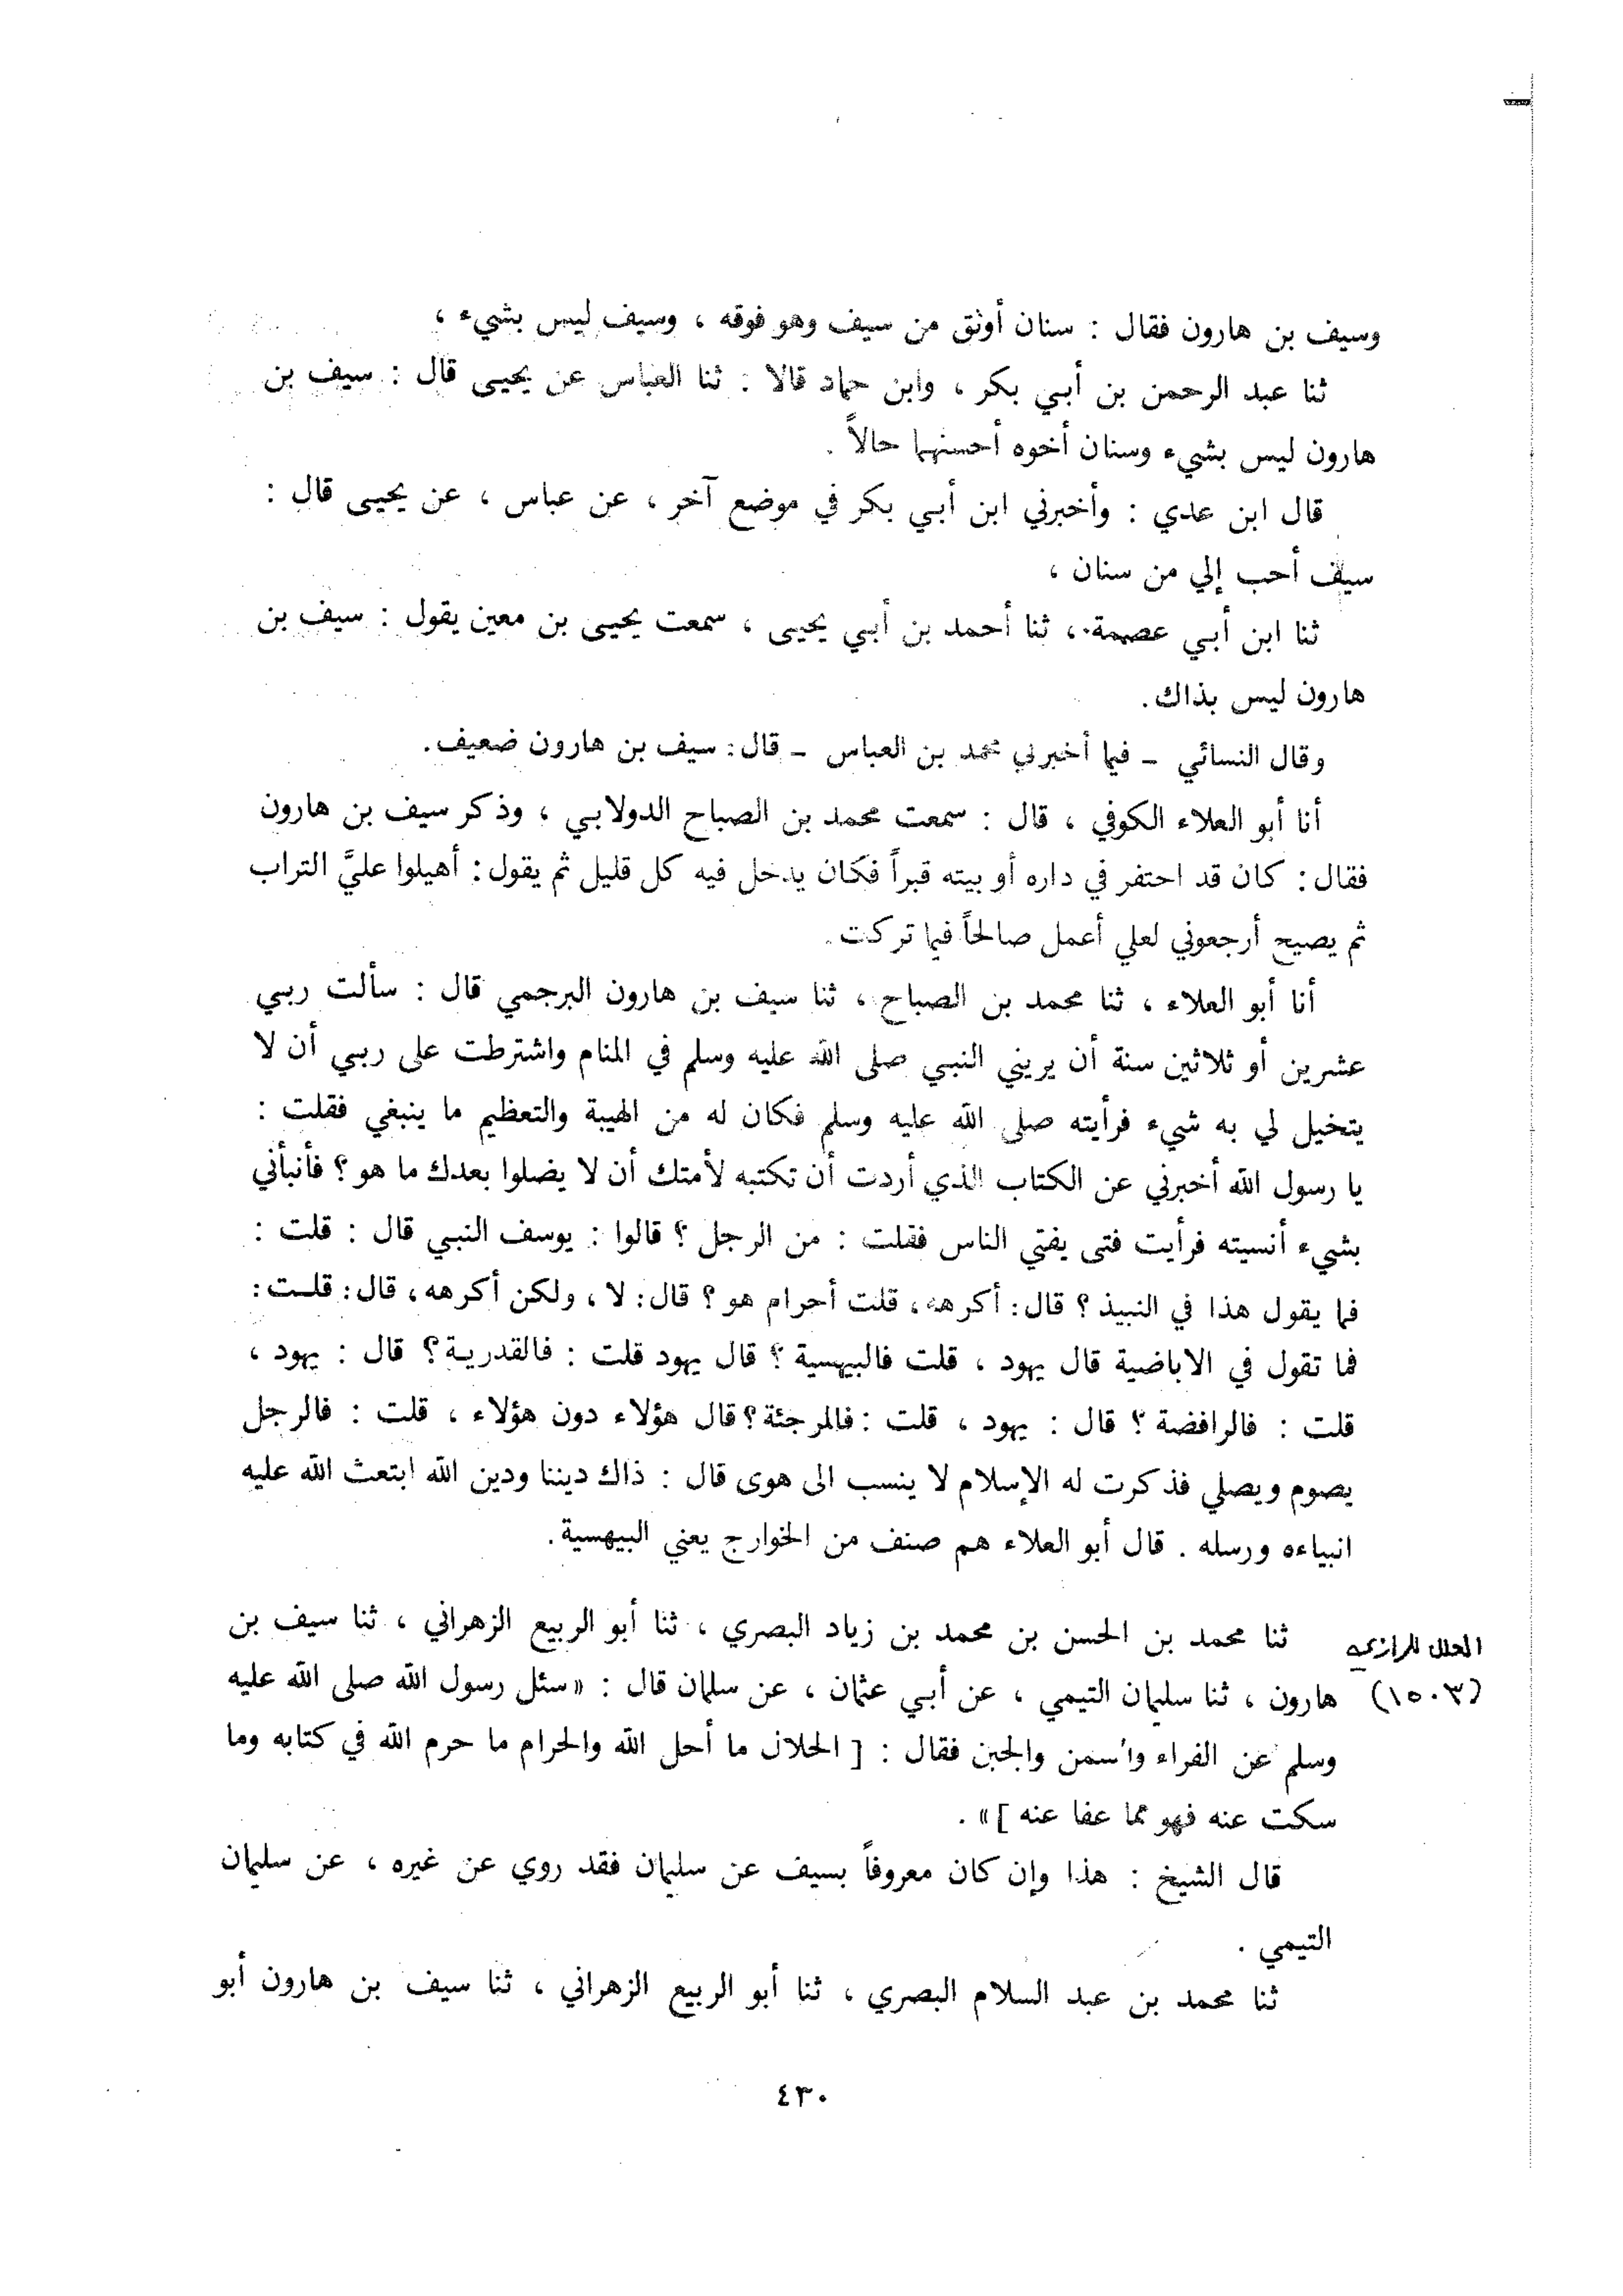 وسيف بن هارون فقال : سنان أوثق من سيف وهو فوقه ، وسيف ليس بشيء ،
ثنا عبد الرحمن بن أبي بكر ، وابن حماد قالا : ثنا العباس عن يحيى قال : سيف بن
هارون ليس بشيء وسنان أخوه أحسنهما حالاً .
قال ابن عدي : وأخبرني ابن أبي بكر في موضع آخر ، عن عباس ، عن يحيى قال :
سيف أحب إلي من سنان ،
ثنا ابن أبي عصمة ، ثنا أحمد بن أبي يحيى ، سمعت يحيى بن معين يقول : سيف بن
هارون ليس بذاك .
وقال النسائي - فيما أخبرني محمد بن العباس - قال : سيف بن هارون ضعيف .
أنا أبو العلاء الكوفي ، قال : سمعت محمد بن الصباح الدولابي ، وذكر سيف بن هارون
فقال : كان قد احتفر في داره أو بيته قبراً فكان يدخل فيه كل قليل ثم يقول : أهيلوا عليَّ التراب
ثم يصيح أرجعوني لعلي أعمل صالحاً فيما تركت .
أنا أبو العلاء ، ثنا محمد بن الصباح ، ثنا سيف بن هارون البرجمي قال : سألت ربي
عشرين أو ثلاثين سنة أن يريني النبي صلى الله عليه وسلم في المنام واشترطت على ربي أن لا
يتخيل لي به شيء فرأيته صلى الله عليه وسلم فكان له من الهيبة والتعظيم ما ينبغي فقلت :
يا رسول الله أخبرني عن الكتاب الذي أردت أن تكتبه لأمتك أن لا يضلوا بعدك ما هو ؟ فأنبأني
بشيء أنسيته فرأيت فتى يفتي الناس فقلت : من الرجل ؟ قالوا : يوسف النبي قال : قلت :
فما يقول هذا في النبيذ ؟ قال : أكرهه ، قلت أحرام هو ؟ قال : لا ، ولكن أكرهه ، قال : قلت :
فما تقول في الاباضية قال يهود ، قلت فالبيهسية ؟ قال يهود قلت : فالقدرية ؟ قال : يهود ،
قلت : فالرافضة ؟ قال : يهود ، قلت : فالمرجئة ؟ قال هؤلاء دون هؤلاء ، قلت : فالرجل
يصوم ويصلي فذكرت له الإسلام لا ينسب الى هوى قال : ذاك ديننا ودين الله ابتعث الله عليه
انبياءه ورسله . قال أبو العلاء هم صنف من الخوارج يعني البيهسية .
ثنا محمد بن الحسن بن محمد بن زياد البصري ، ثنا أبو الربيع الزهراني ، ثنا سيف بن
العلل للرازي
هارون ، ثنا سليمان التيمي ، عن أبي عثمان ، عن سلمان قال : « سئل رسول الله صلى الله عليه
(١٥٠٣)
وسلم عن الفراء والسمن والجبن فقال : [ الحلال ما أحل الله والحرام ما حرم الله في كتابه وما
سكت عنه فهو مما عفا عنه ] » .
قال الشيخ : هذا وإن كان معروفاً بسيف عن سليمان فقد روي عن غيره ، عن سليمان
التيمي .
ثنا محمد بن عبد السلام البصري ، ثنا أبو الربيع الزهراني ، ثنا سيف بن هارون أبو
٤٣٠